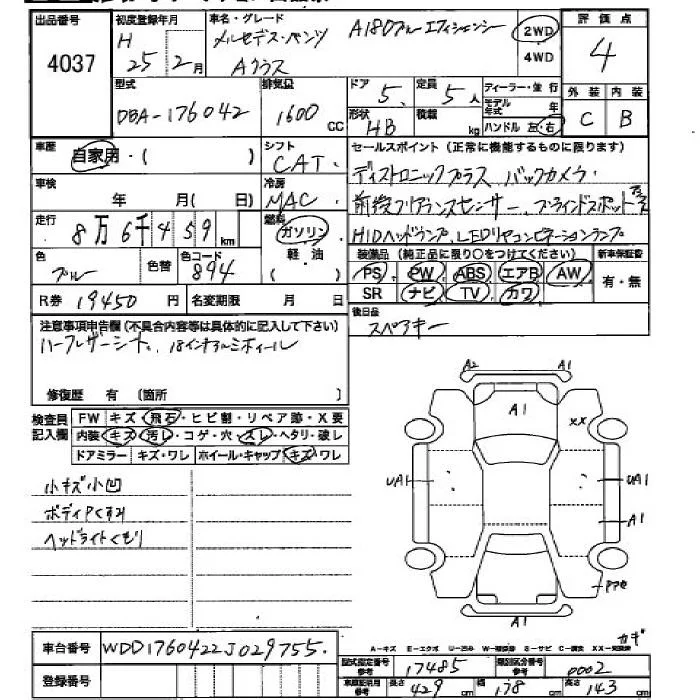 出品番号 初度登録年月 車名・グレード 評価点
4037 H 25年 2月 メルセデス・ベンツ A180ブルーエフィシェンシー 2WD 4
Aクラス 4WD
型式 排気量 ドア 定員 ディーラー・並行 外装 内装
DBA-176042 1600cc 5 5人 モデル年式 年 C B
形状 積載 HB kg ハンドル 左・右
車歴 自家用・( ) シフト セールスポイント(正常に機能するものに限ります)
CAT ディストロニックプラス バックカメラ・
車検 年 月( 日) 冷房 MAC 前後クリアランスセンサー、ブラインドスポット
走行 8万6千459km 燃料 ガソリン HIDヘッドランプ、LEDリヤコンビネーションランプ
軽油 装備品(純正品に限り○をつけてください) 新車保証書
色 色替 色コード PS PW ABS エアB AW 有・無
ブルー 894 ( ) SR ナビ TV カワ
R券 19450円 名変期限 月 日 後日品
スペアキー
注意事項申告欄(不具合内容等は具体的に記入して下さい)
ハーフレザーシート、18インチアルミホイール
修復歴 有 〔箇所 〕
検査員 FW キズ・飛石・ヒビ割・リペア跡・X要
記入欄 内装 キズ・汚レ・コゲ・穴・スレ・ヘタリ・破レ
ドアミラー キズ・ワレ ホイール・キャップ キズ・ワレ
小キズ小凹
ボディPくすみ
ヘッドライトくもり
A2 A1
A1
XX
UA1 UA1
A1
A1
カギ
A-キズ E-エクボ U-凹み W-補修跡 S-サビ C-腐食 XX-交換済
車台番号 WDD1760422J029755.
型式指定番号 17485 類別区分番号 0002
登録番号 車庫証明用参考 長さ 429cm 幅 178cm 高さ 143cm